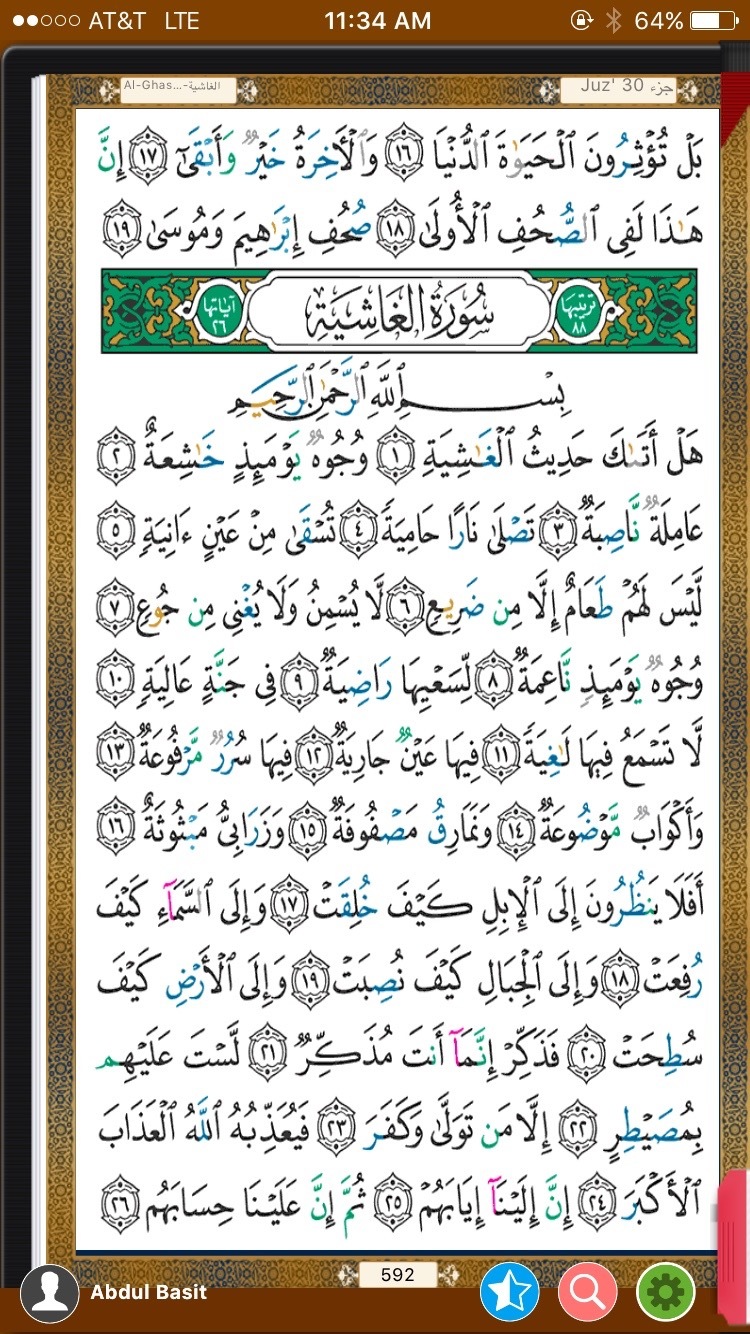 AT&T LTE 11:34 AM 64%
Al-Ghas...-الغاشية Juz' 30 جزء
بَلْ تُؤْثِرُونَ ٱلْحَيَوٰةَ ٱلدُّنْيَا ١٦ وَٱلْـَٔاخِرَةُ خَيْرٌ وَأَبْقَىٰٓ ١٧ إِنَّ
هَـٰذَا لَفِى ٱلصُّحُفِ ٱلْأُولَىٰ ١٨ صُحُفِ إِبْرَٰهِيمَ وَمُوسَىٰ ١٩
ترتيبها ٨٨ سُورَةُ الغَاشِيَة آياتها ٢٦
بِسْمِ ٱللَّهِ ٱلرَّحْمَـٰنِ ٱلرَّحِيمِ
هَلْ أَتَىٰكَ حَدِيثُ ٱلْغَـٰشِيَةِ ١ وُجُوهٌ يَوْمَئِذٍ خَـٰشِعَةٌ ٢
عَامِلَةٌ نَّاصِبَةٌ ٣ تَصْلَىٰ نَارًا حَامِيَةً ٤ تُسْقَىٰ مِنْ عَيْنٍ ءَانِيَةٍ ٥
لَّيْسَ لَهُمْ طَعَامٌ إِلَّا مِن ضَرِيعٍ ٦ لَّا يُسْمِنُ وَلَا يُغْنِى مِن جُوعٍ ٧
وُجُوهٌ يَوْمَئِذٍ نَّاعِمَةٌ ٨ لِّسَعْيِهَا رَاضِيَةٌ ٩ فِى جَنَّةٍ عَالِيَةٍ ١٠
لَّا تَسْمَعُ فِيهَا لَـٰغِيَةً ١١ فِيهَا عَيْنٌ جَارِيَةٌ ١٢ فِيهَا سُرُرٌ مَّرْفُوعَةٌ ١٣
وَأَكْوَابٌ مَّوْضُوعَةٌ ١٤ وَنَمَارِقُ مَصْفُوفَةٌ ١٥ وَزَرَابِىُّ مَبْثُوثَةٌ ١٦
أَفَلَا يَنظُرُونَ إِلَى ٱلْإِبِلِ كَيْفَ خُلِقَتْ ١٧ وَإِلَى ٱلسَّمَآءِ كَيْفَ
رُفِعَتْ ١٨ وَإِلَى ٱلْجِبَالِ كَيْفَ نُصِبَتْ ١٩ وَإِلَى ٱلْأَرْضِ كَيْفَ
سُطِحَتْ ٢٠ فَذَكِّرْ إِنَّمَآ أَنتَ مُذَكِّرٌ ٢١ لَّسْتَ عَلَيْهِم
بِمُصَيْطِرٍ ٢٢ إِلَّا مَن تَوَلَّىٰ وَكَفَرَ ٢٣ فَيُعَذِّبُهُ ٱللَّهُ ٱلْعَذَابَ
ٱلْأَكْبَرَ ٢٤ إِنَّ إِلَيْنَآ إِيَابَهُمْ ٢٥ ثُمَّ إِنَّ عَلَيْنَا حِسَابَهُم ٢٦
592
Abdul Basit